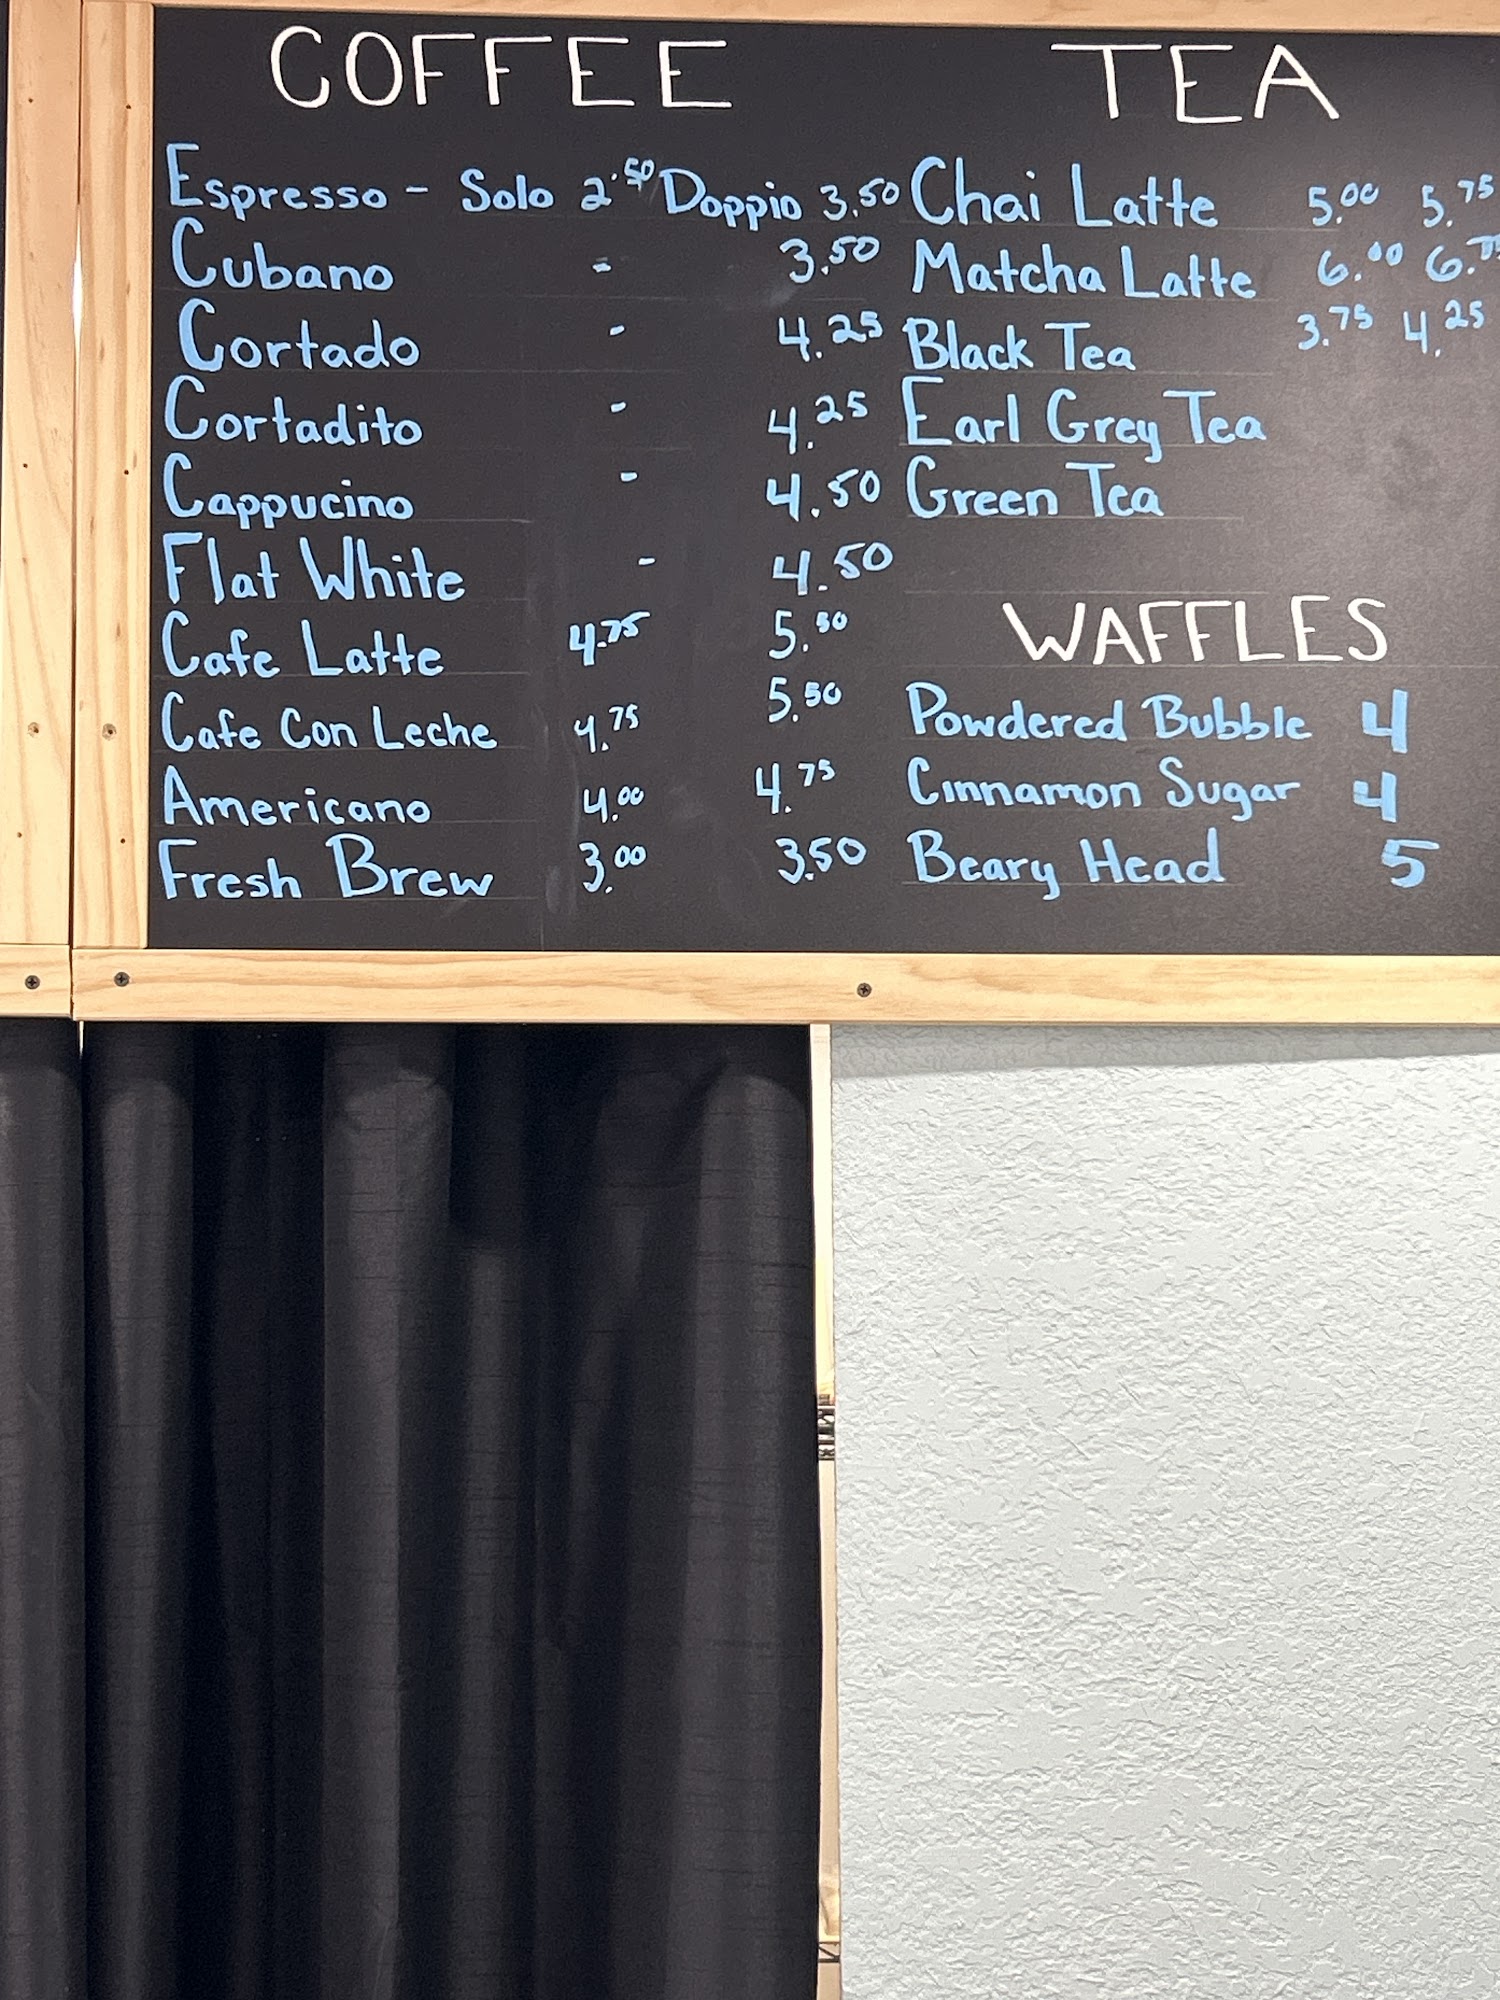 COFFEE
Espresso - Solo 2.50 Doppio 3.50
Cubano - 3.50
Cortado - 4.25
Cortadito - 4.25
Cappucino - 4.50
Flat White - 4.50
Cafe Latte 4.75 5.50
Cafe Con Leche 4.75 5.50
Americano 4.00 4.75
Fresh Brew 3.00 3.50
TEA
Chai Latte 5.00 5.75
Matcha Latte 6.00
Black Tea 3.75 4.25
Earl Grey Tea
Green Tea
WAFFLES
Powdered Bubble 4
Cinnamon Sugar 4
Beary Head 5